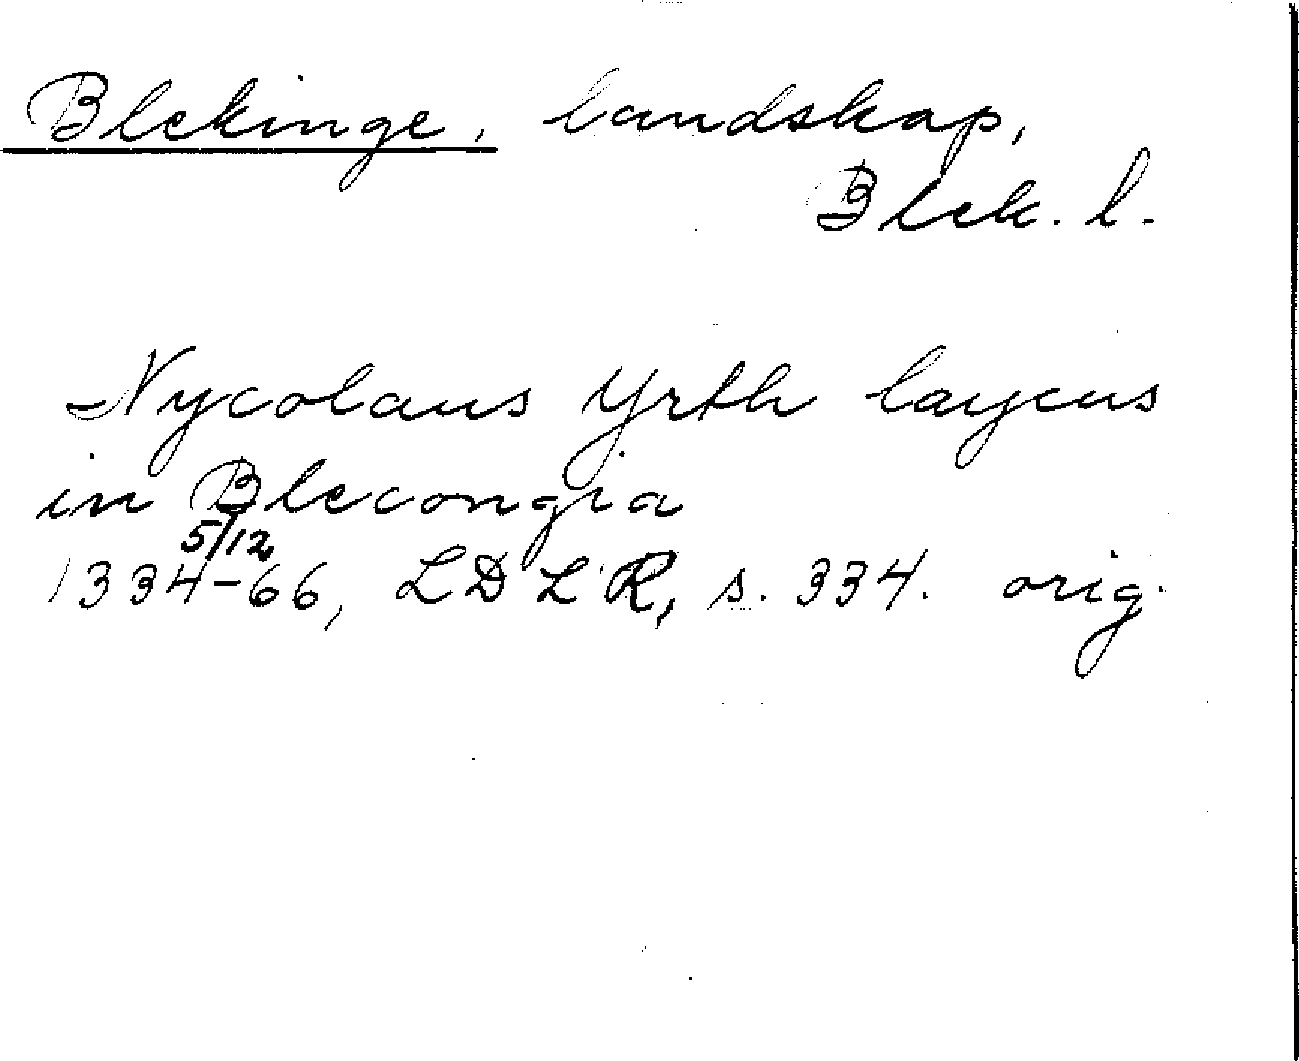 Blekinge, landskap,
Blek. l.
Nycolaus Yrth laycus
in Blecongia
5/12
1334-66, LDLR, s. 334. orig.